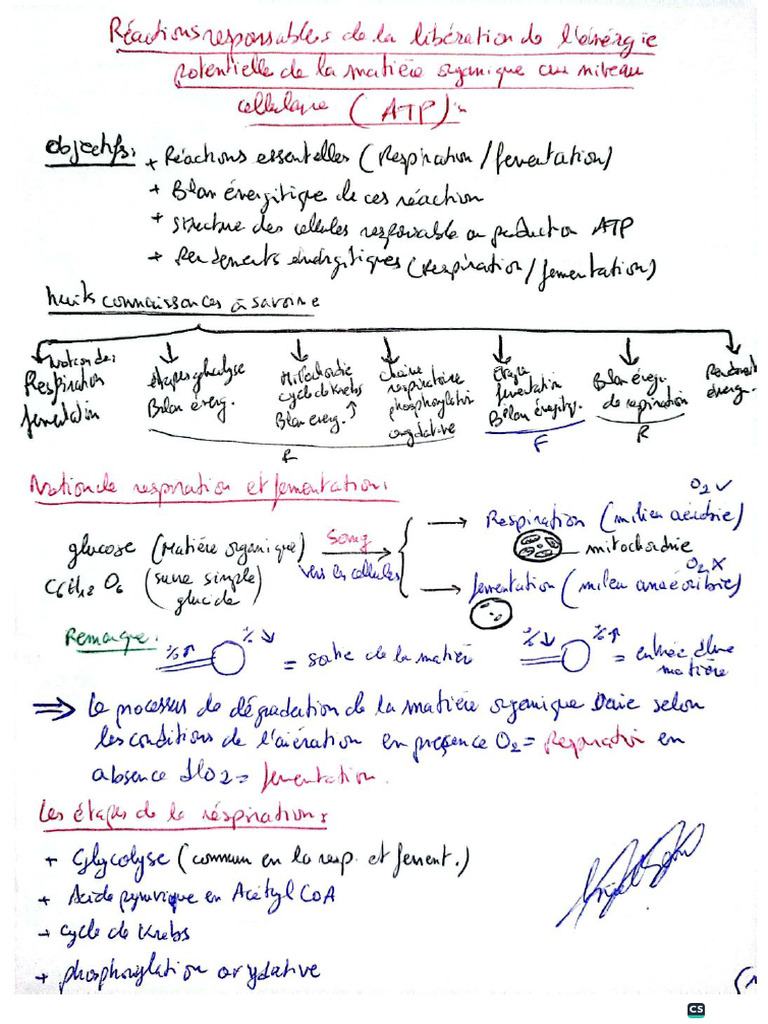 Réactions responsables de la libération de l'énérgie
potentielle de la matière organique au niveau
cellulaire (ATP):
Objectifs: + Réactions essentelles (Respiration/fermentation)
+ Bilan énergitique de ces réaction
+ structure des cellules responsable au production ATP
+ Rendements énérgitiques (Respiration/fermentation)
huits connaissances à savoire
Notion de: Respiration fermentation
étapes glycolyse Bilan énerg.
Mitochondrie cycle de Krebs Bilan énerg.
chaine respiratoire phosphorylation oxydative
Etape fermentation Bilan énergitiq.
Bilan énergi. de respiration
Rendement énerg.
R
F
R
Notion de respiration et fermentation:
O2 ✓
→ Respiration (milieu aérobie)
mitochondrie
glucose (Matière organique) Sang
C6H12O6 (sucre simple) vers les cellules
glucide
O2 X
→ fermentation (milieu anaérobie)
Remarque: %↑ %↓ = sortie de la matière %↓ %↑ = entrée d'une
matière
⇒ Le processus de dégradation de la matière organique varie selon
les conditions de l'aiération en presence O2 = Respiration en
absence d'O2 = fermentation.
Les étapes de la réspiration:
+ Glycolyse (commun en la resp. et ferment.)
+ Acide pyruvique en Acétyl CoA
→ cycle de Krebs
+ phosphorylation oxydative
CS